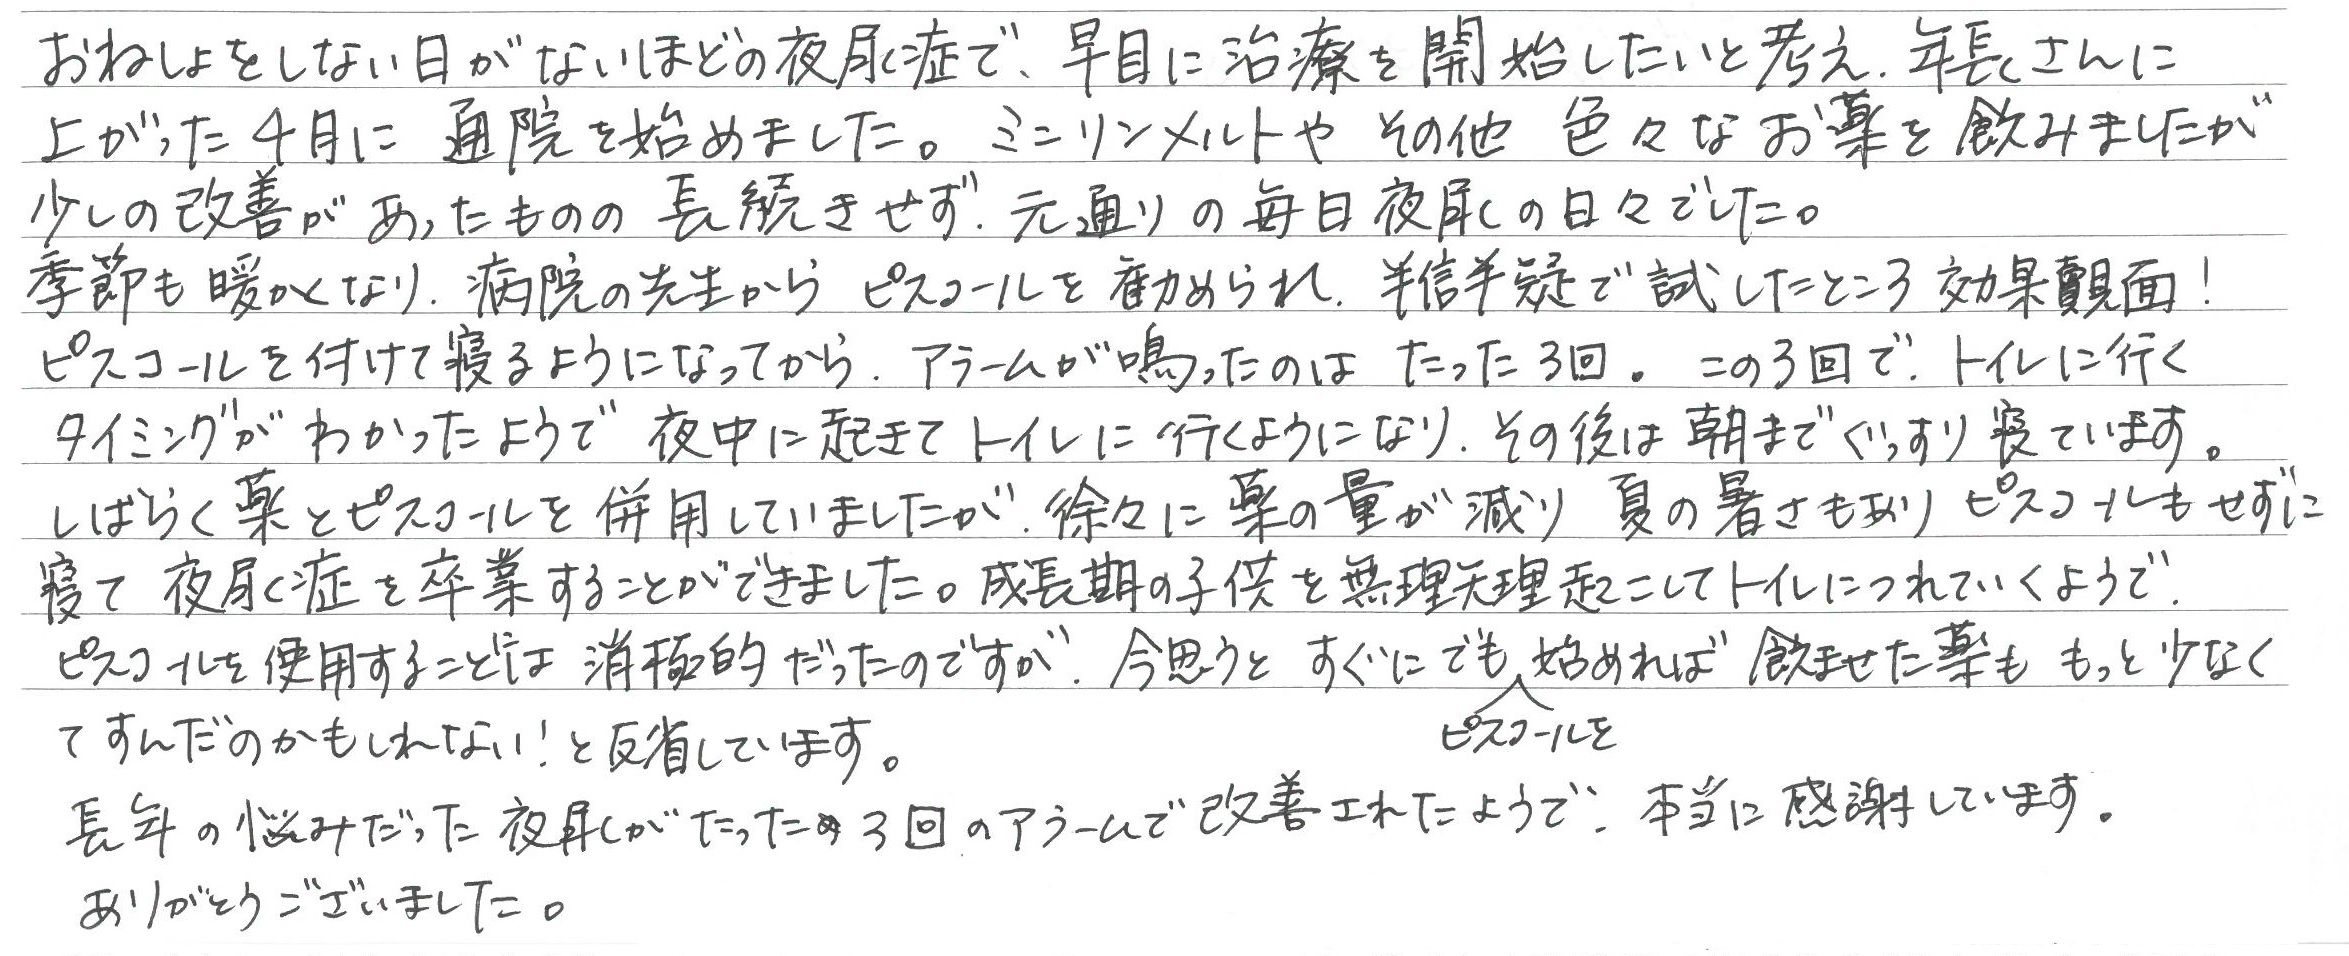 おねしょをしない日がないほどの夜尿症で、早目に治療を開始したいと考え、年長さんに
上がった4月に 通院を始めました。ミニリンメルトや その他 色々なお薬を飲みましたが
少しの改善が あったものの 長続きせず、元通りの毎日夜尿の日々でした。
季節も暖かくなり、病院の先生から ピスコールを勧められ、半信半疑で試したところ効果覿面!
ピスコールを付けて寝るようになってから、アラームが鳴ったのは たった3回。この3回で、トイレに行く
タイミングが わかったようで 夜中に起きてトイレに行くようになり、その後は朝までぐっすり寝ています。
しばらく薬とピスコールを併用していましたが、徐々に薬の量が減り 夏の暑さもあり ピスコールもせずに
寝て 夜尿症を卒業することができました。成長期の子供を無理矢理起こしてトイレにつれていくようで、
ピスコールを使用することには消極的だったのですが、今思うと すぐにでも 始めれば 飲ませた薬も もっと少なく
ピスコールを
てすんだのかもしれない!と反省しています。
長年の悩みだった夜尿がたった3回のアラームで改善されたようで、本当に感謝しています。
ありがとうございました。